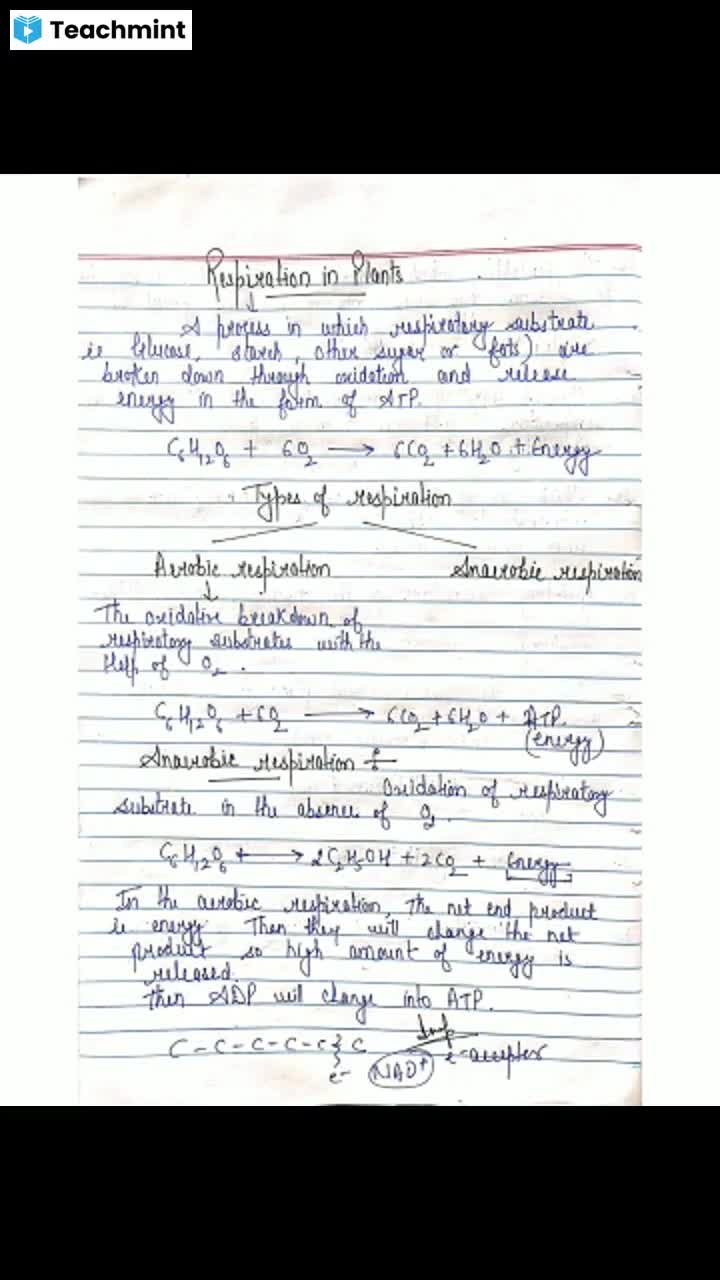 Teachmint
Respiration in Plants
↓
A process in which respiratory substrate
ie Glucose, starch, other sugar or fats) are
broken down through oxidation and release
energy in the form of ATP.
C₆H₁₂O₆ + 6O₂ ⟶ 6CO₂ + 6H₂O + Energy
Types of respiration
Aerobic respiration Anaerobic respiration
↓
The oxidative breakdown of
respiratory substrates with the
Help of O₂.
C₆H₁₂O₆ + 6O₂ ⟶ 6CO₂ + 6H₂O + ATP
(energy)
Anaerobic respiration :-
Oxidation of respiratory
substrate in the absence of O₂.
C₆H₁₂O₆ + ⟶ 2C₂H₅OH + 2CO₂ + Energy
In the aerobic respiration, the net end product
is energy. Then they will change the net
product so high amount of energy is
released.
then ADP will change into ATP.
Imp
C-C-C-C-C C
e- NAD⁺ e-acceptor